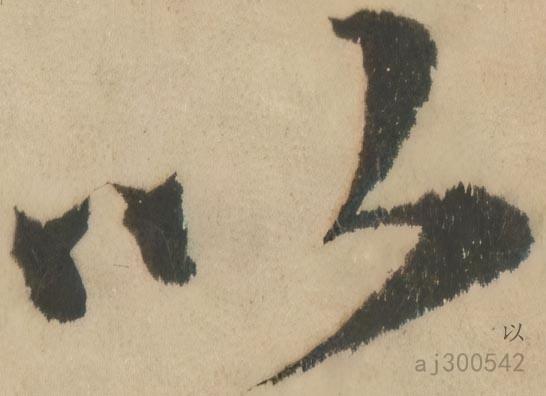 以
以
aj300542